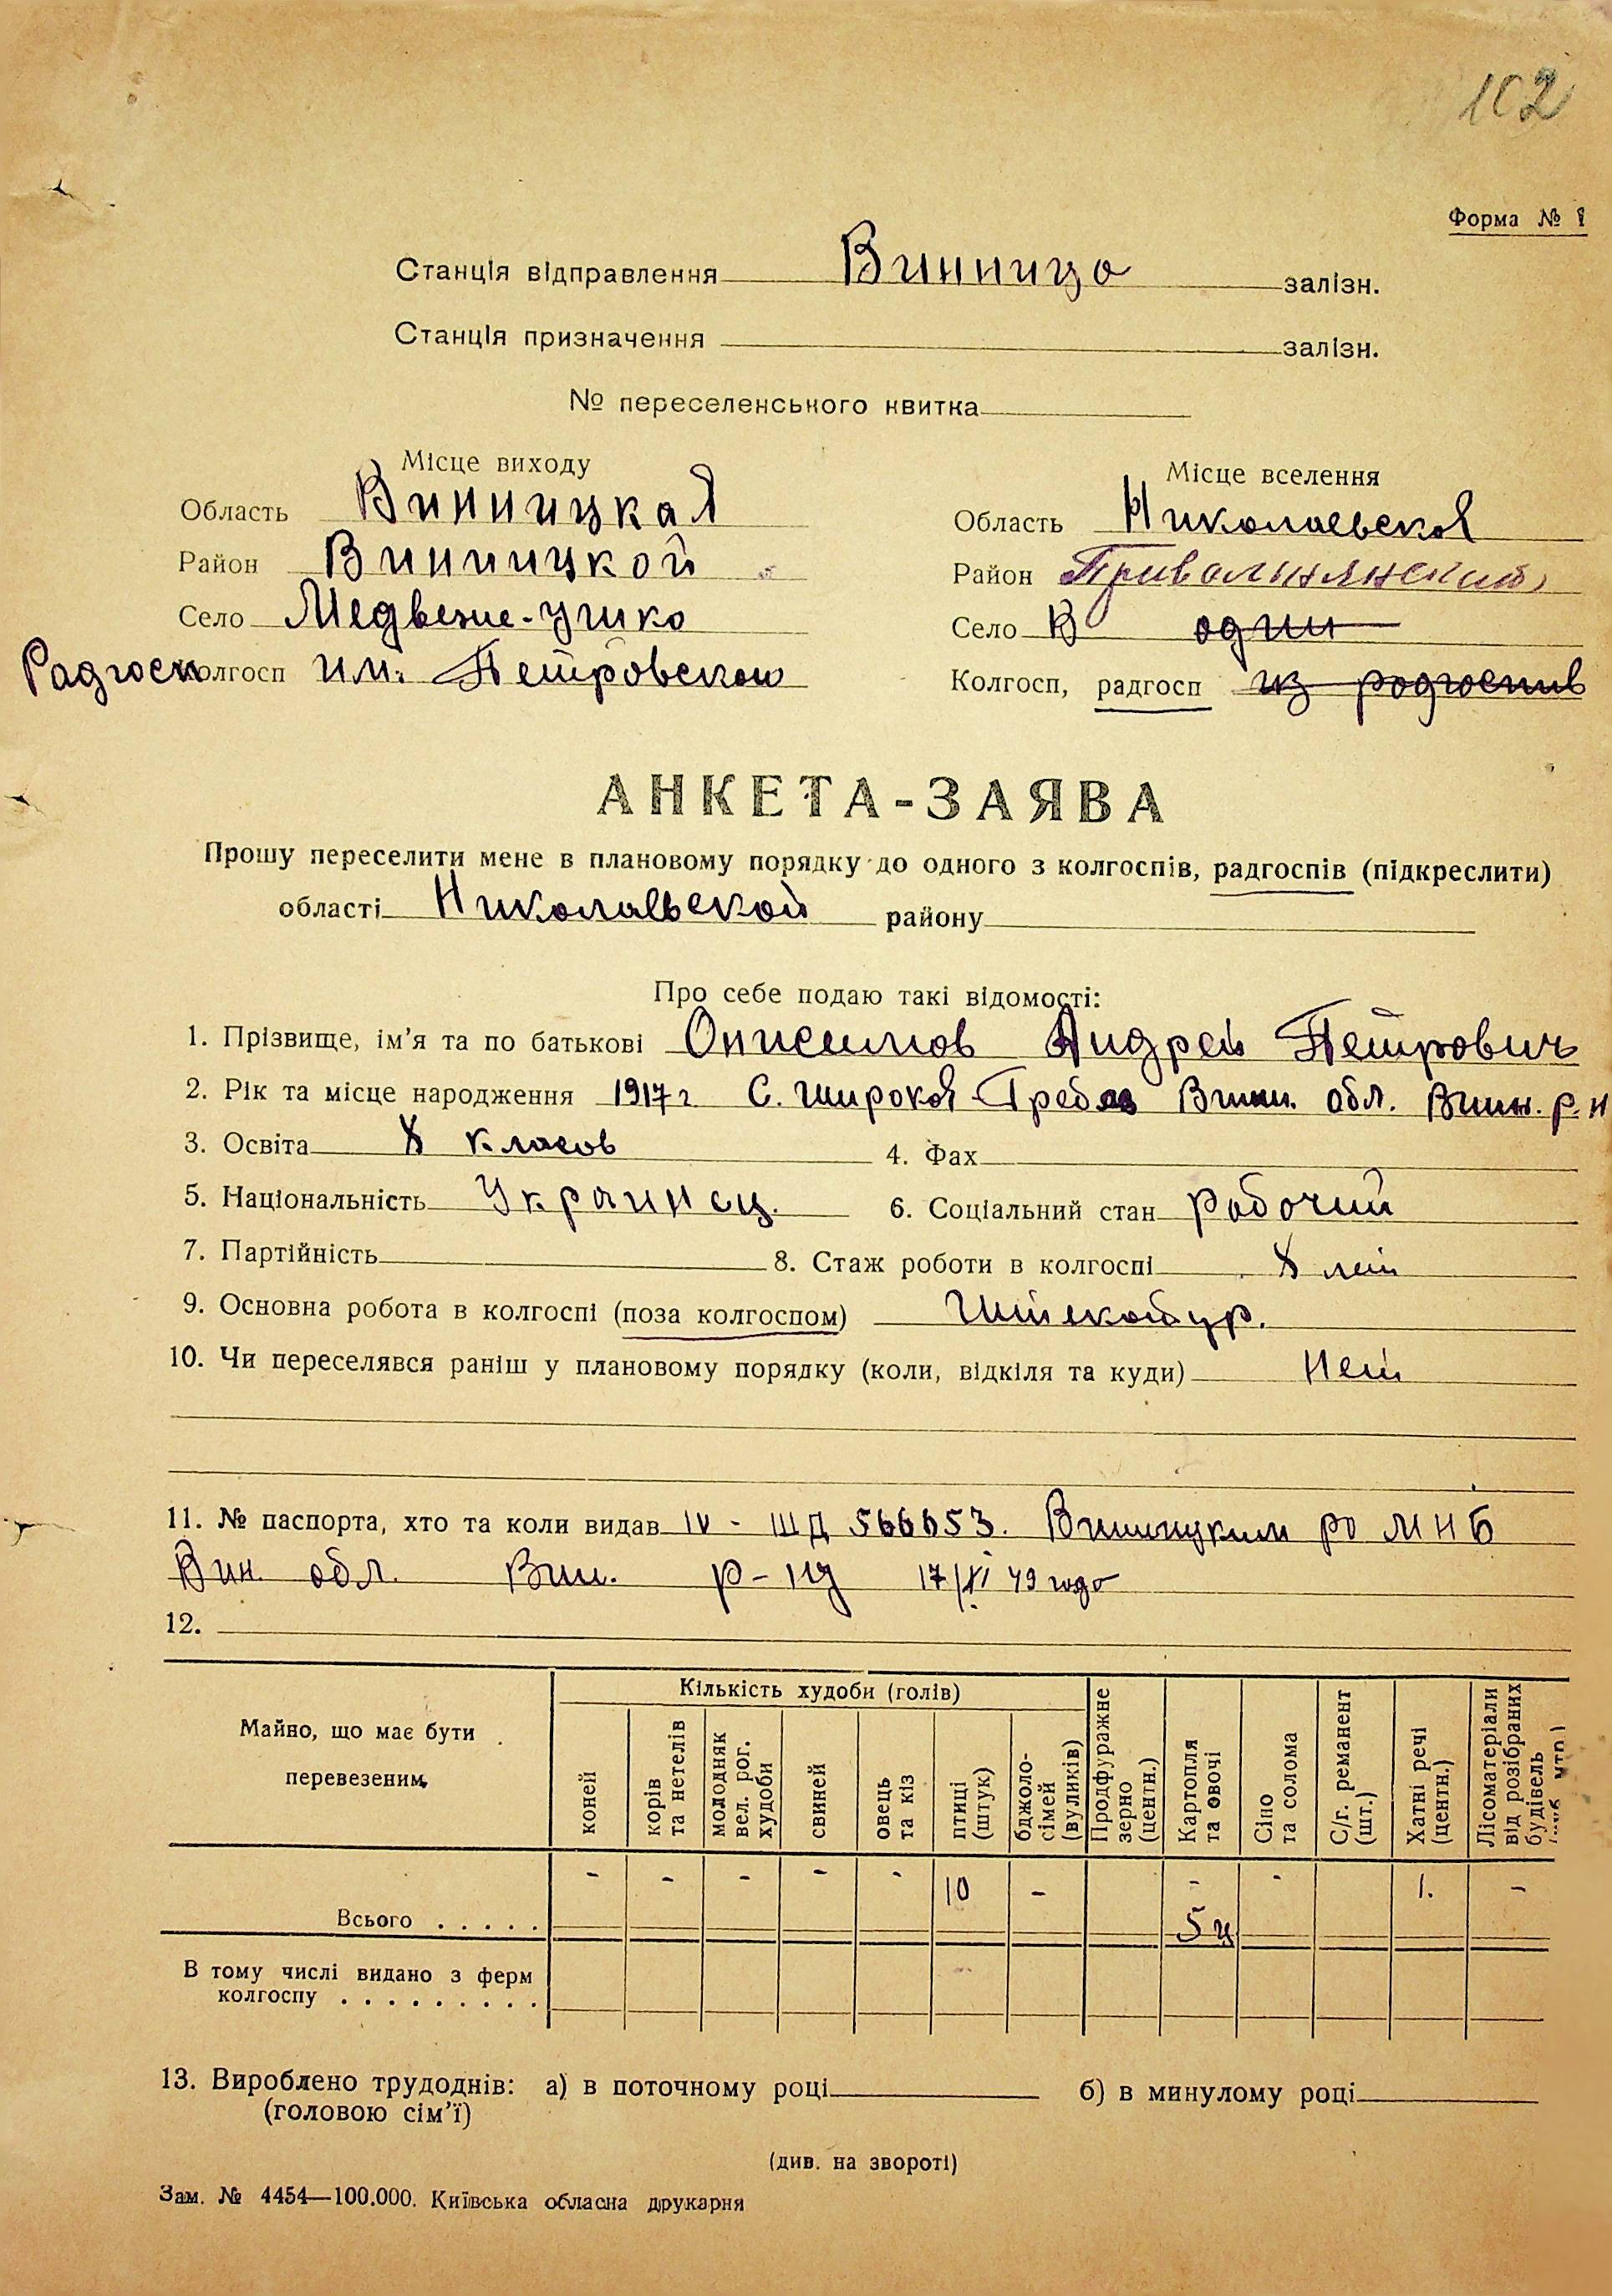 102
Форма № 1
Станція відправлення Винница залізн.
Станція призначення залізн.
№ переселенського квитка
Місце виходу
Область Винницкая
Район Винницкой
Село Медвежие-Ушко
Радгосп Колгосп им. Петровского
Місце вселення
Область Николаевской
Район Привольнянский
Село В один
Колгосп, радгосп из родгоспив
АНКЕТА-ЗАЯВА
Прошу переселити мене в плановому порядку до одного з колгоспів, радгоспів (підкреслити)
області Николаевской району
Про себе подаю такі відомості:
1. Прізвище, ім'я та по батькові Онисимов Андрей Петрович
2. Рік та місце народження 1917 г С. Широкая Гребля Винн. обл. Винн. р-н
3. Освіта класов 4. Фах
5. Національність Украинец. 6. Соціальний стан рабочий
7. Партійність 8. Стаж роботи в колгоспі лет
9. Основна робота в колгоспі (поза колгоспом) Штукатур.
10. Чи переселявся раніш у плановому порядку (коли, відкіля та куди) Нет
11. № паспорта, хто та коли видав IV - ШД 566653. Винницким РО МНБ
Вин. обл. Вин. р-ну 17/XI 49 года
12.
Майно, що має бути перевезеним
Кількість худоби (голів)
коней
корів та нетелів
молодняк вел. рог. худоби
свиней
овець та кіз
птиці (штук)
бджоло-сімей (вуликів)
Продфуражне зерно (центн.)
Картопля та овочі
Сіно та солома
С/г. реманент (шт.)
Хатні речі (центн.)
Лісоматеріали від розібраних будівель
Всього . . . . . - - - - - 10 - - 5 ц - 1. -
В тому числі видано з ферм
колгоспу . . . . . . . . .
13. Вироблено трудоднів: а) в поточному році б) в минулому році
(головою сім'ї)
(див. на звороті)
Зам. № 4454—100.000. Київська обласна друкарня